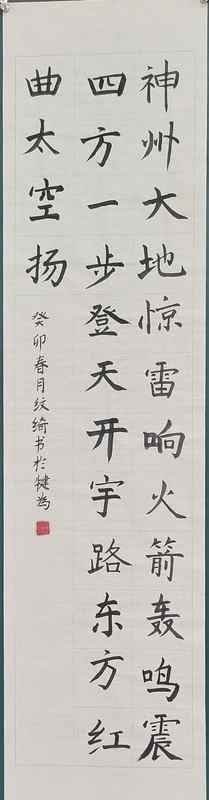 神州大地惊雷响火箭轰鸣震
四方一步登天开宇路东方红
曲太空扬
癸卯春月纹绮书于犍为